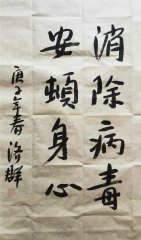 消除病毒
安頓身心
庚子年春 济群